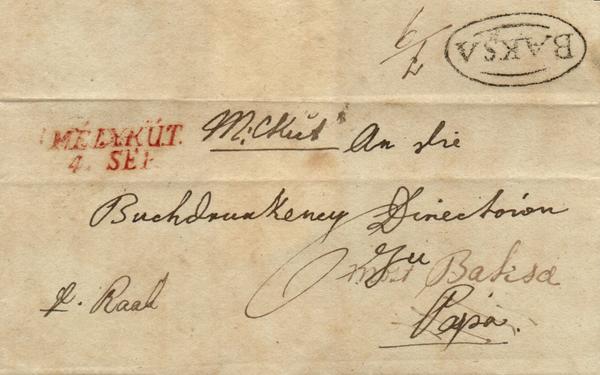 BAKSA
MÉLYKÚT.
4. SEP.
M: Kút
An die
Buchdrunkeney Directoion
Zu
Baksa
Papa.
p. Raab